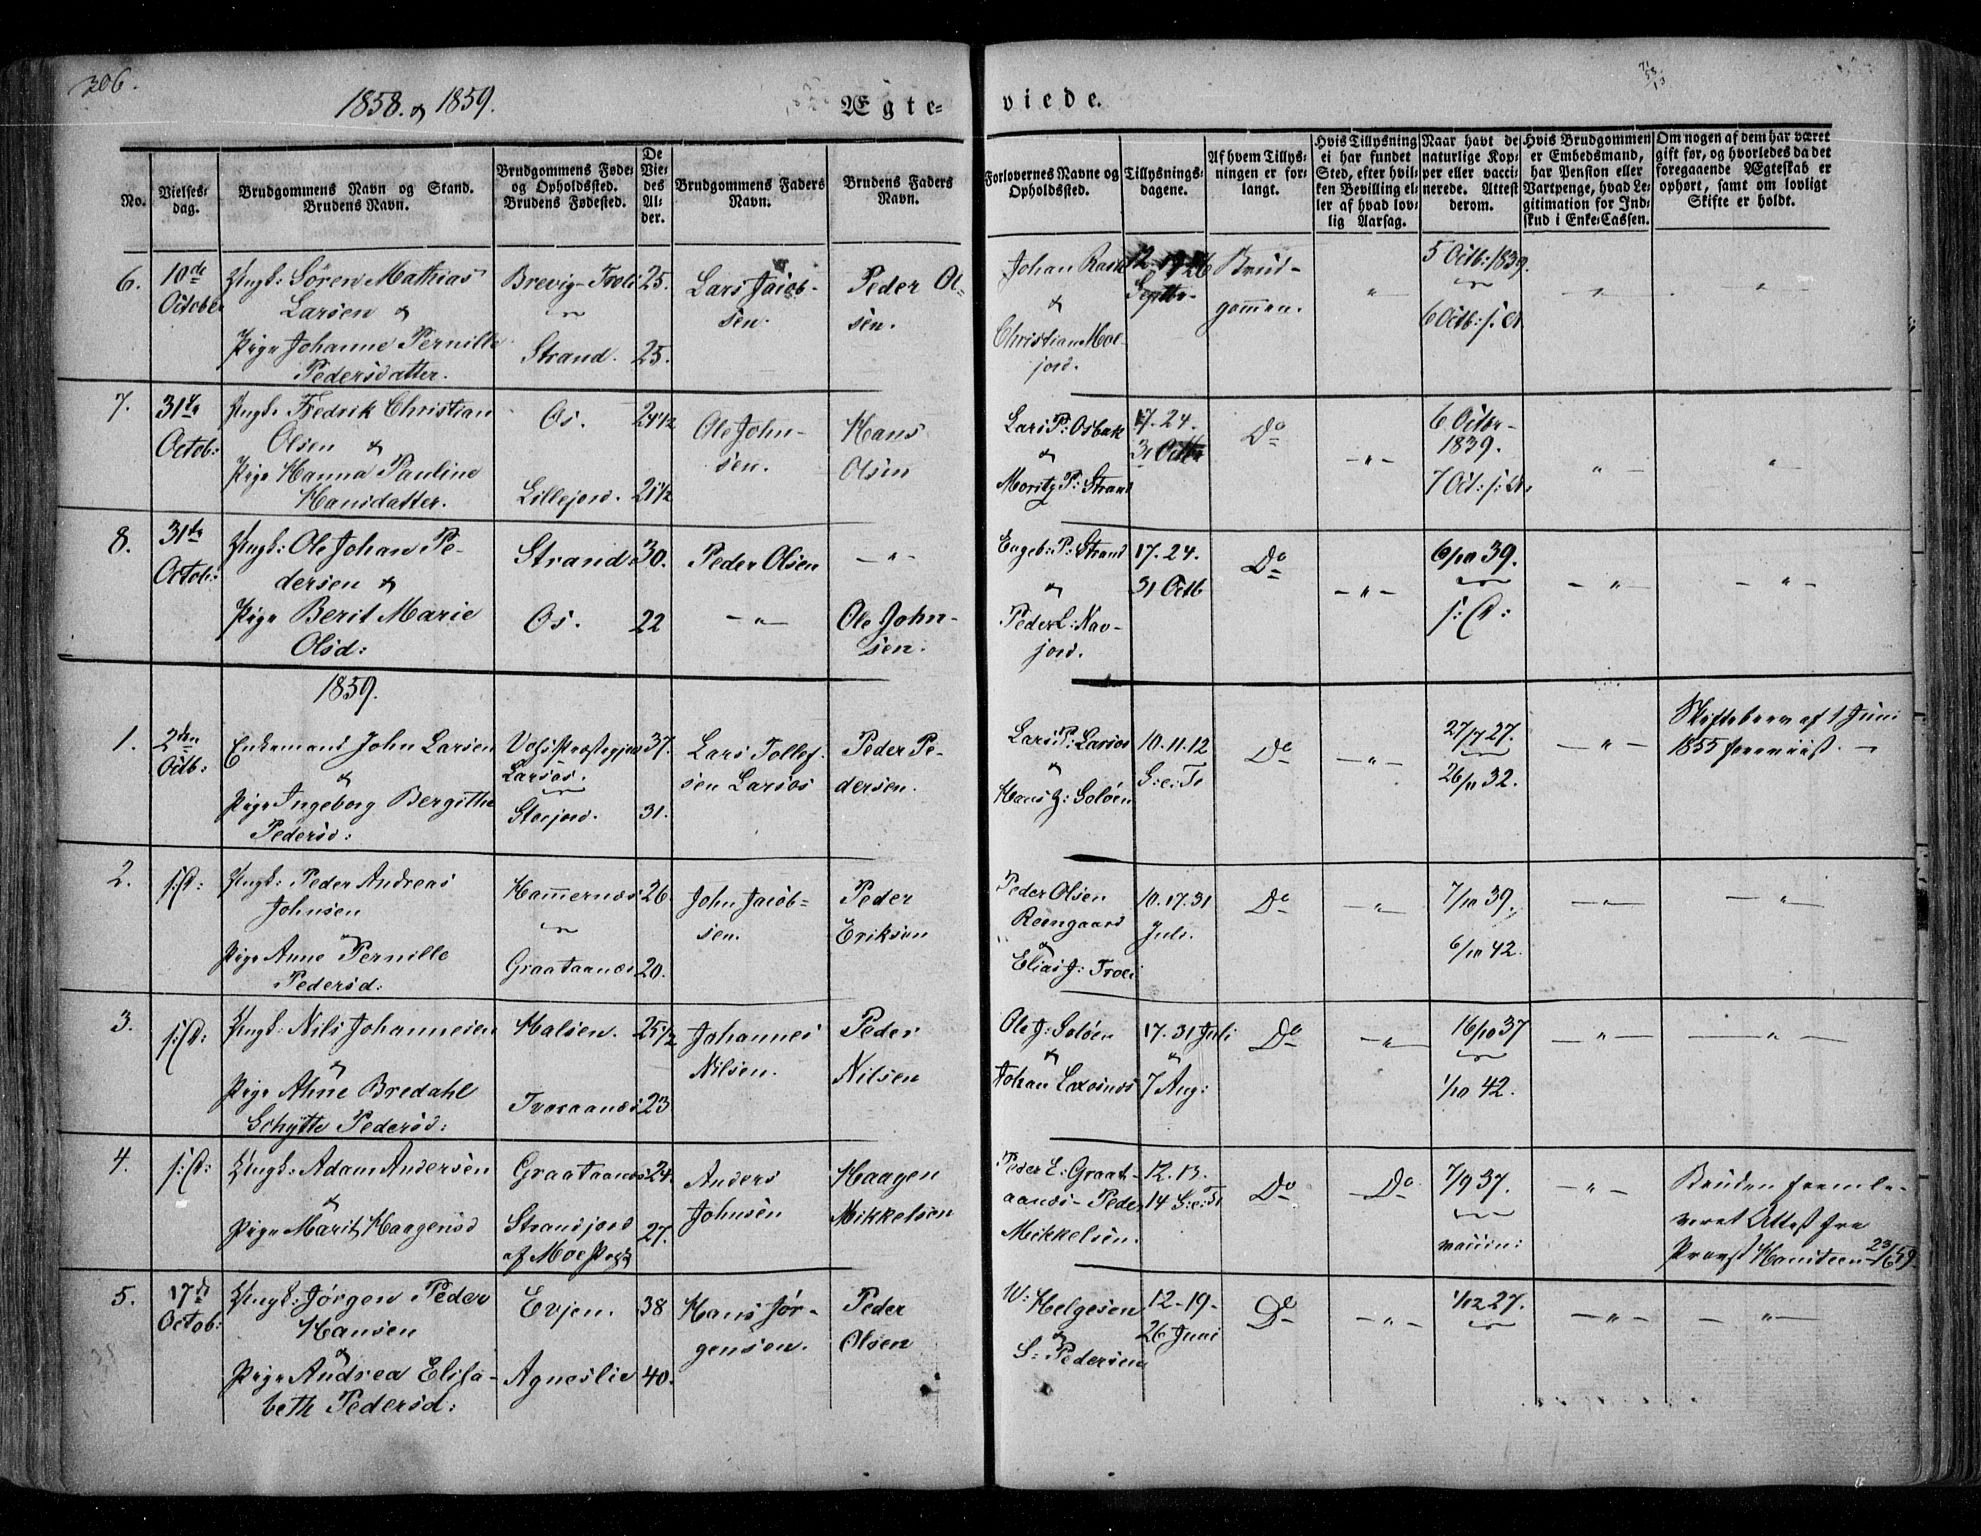 306.
1858. & 1859.
Ægte=
viede.
No.
Vielses-
dag.
Brudgommens Navn og Stand.
Brudens Navn.
Brudgommens Føde-
og Opholdssted.
Brudens Fødested.
De
Vie-
des
Al-
der.
Brudgommens Faders
Navn.
Brudens Faders
Navn.
Forlovernes Navne og
Opholdssted.
Tillysnings-
dagene.
Af hvem Tillys-
ningen er for-
langt.
Hvis Tillysning
ei har fundet
Sted, efter hvil-
ken Bevilling el-
ler af hvad lov-
lig Aarsag.
Naar havt de
naturlige Kop-
per eller vacci-
nerede. Attest
derom.
Hvis Brudgommen
er Embedsmand,
har Pension eller
Vartpenge, hvad Le-
gitimation for Ind-
skud i Enke-Cassen.
Om nogen af dem har været
gift før, og hvorledes da det
foregaaende Ægteskab er
ophørt, samt om lovligt
Skifte er holdt.
6.
10de
October
Ungk: Sören Mathias
Larsen &
Pige Johanne Pernille
Pedersdatter.
Brevig-
Strand.
25.
25.
Lars Jacob-
sen.
Peder Ol-
sen.
Johan
&
Christian Moe-
jord.
12. 19. 26
Septbr-
Brud-
gommen.
5 Octb: 1839.
6 Octb: s. A.
7.
31te
Octob:
Ungk: Fredrik Christian
Olsen &
Pige Hanna Pauline
Hansdatter.
Os.
Lillejord.
24 1/2
21 1/2
Ole John-
sen.
Hans
Olsen
Lars P: Osbak
&
Moritz P: Strand
17. 24.
31 Octbr
Do
6 Octbr-
1839.
7 Oct: s: A.
8.
31te
Octob:
Ungk: Ole Johan Pe-
dersen &
Pige Berit Marie
Olsd:
Strand
Os.
30.
22
Peder Olsen
Ole John-
sen.
Engeb: P: Strand
&
Peder L: Nav-
jord.
17. 24.
31 Octb
Do
6/10 39.
s: D:
1859.
1.
2den
Octb:
Enkemand John Larsen
&
Pige Ingeborg Bergithe
Pedersd:
Larsos.
Storjord.
37.
31.
Lars Tollef-
sen Larsos
Peder Pe-
dersen.
Lars P: Larsos
&
Hans J: Soløen
10. 11. 12
S: e: Tr
Do
27/7 27.
26/11 32.
Skiftebrev af 1 Juni
1855 foreviist.
2.
s: D:
Ungk: Peder Andreas
Johnsen
&
Pige Anne Pernille
Pedersd:
Hamernæs
Graataanes
26
20.
John Jacob-
sen.
Peder
Eriksen
Peder Olsen
Reengaard
&
Elias J: Troli
10. 17. 31
Juli.
Do
7/10 39.
6/10 42.
3.
s: D:
Ungk: Nils Johannesen
&
Pige Ahne Bredahl
Schytte Pedersd:
Halsen.
Tveraanæs
25 1/2
23
Johannes
Nilsen.
Peder
Nilsen
Ole J: Soløen
&
Johan Laxosnæs
17. 31 Juli
&
7 Aug:
Do
16/10 37
1/10 42.
4.
s: D:
Ungk: Adam Andersen
&
Pige Marit Haagensd
Graataanes
Strandjord
af Moe
24.
27.
Anders
Johnsen
Haagen
Mikkelsen
Peder E: Graat-
aanæs- Peder
Mikkelsen.
12. 13.
14. S: e: Tr
Do
Do
7/9 37.
vaccin:
Bruden fremle-
veret Attest fra
Provst 23/6 59
5.
17de
Octob:
Ungk: Jørgen Peder
Hansen
&
Pige Andrea Elisa-
beth Pedersd:
Evjen.
Agneslie
38
40.
Hans Jør-
gensen.
Peder
Olsen
W: Helgesen
&
S: Pedersen
12-19-
26 Juni
Do
1/12 27.